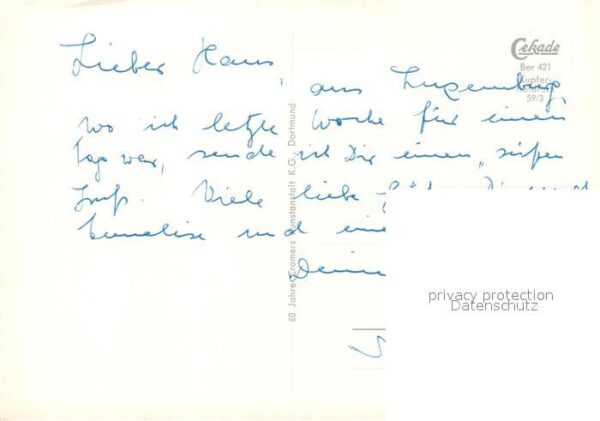 Lieber Hans,
aus Luxemburg,
wo ich letzte Woche für einen
Tag war, sende ich Dir einen "süßen
Gruß. Viele liebe
und eine
Deine
Cekade
Ber 421
Kupfer-
59/3
60 Jahre Cramers Kunstanstalt K.G., Dortmund
privacy protection
Datenschutz